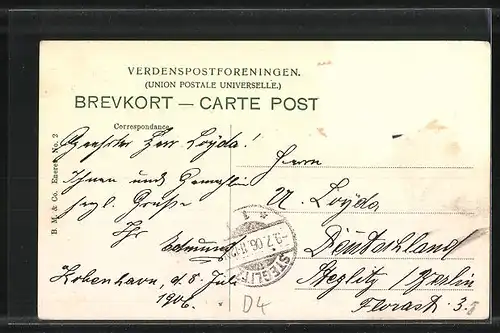 VERDENSPOSTFORENINGEN.
(UNION POSTALE UNIVERSELLE.)
BREVKORT — CARTE POST
Correspondance
B. M. & Co. Eneret No. 2
Geehrter Herr Loÿda!
Ihnen und Gemahlin
herzl. Grüße
Ihr
Edmund
Kobenhavn, d. 5 Juli
1906.
Herrn
A. Loÿda
Deutschland
Steglitz / Berlin
Florastr. 3.
STEGLITZ
7.06
D4